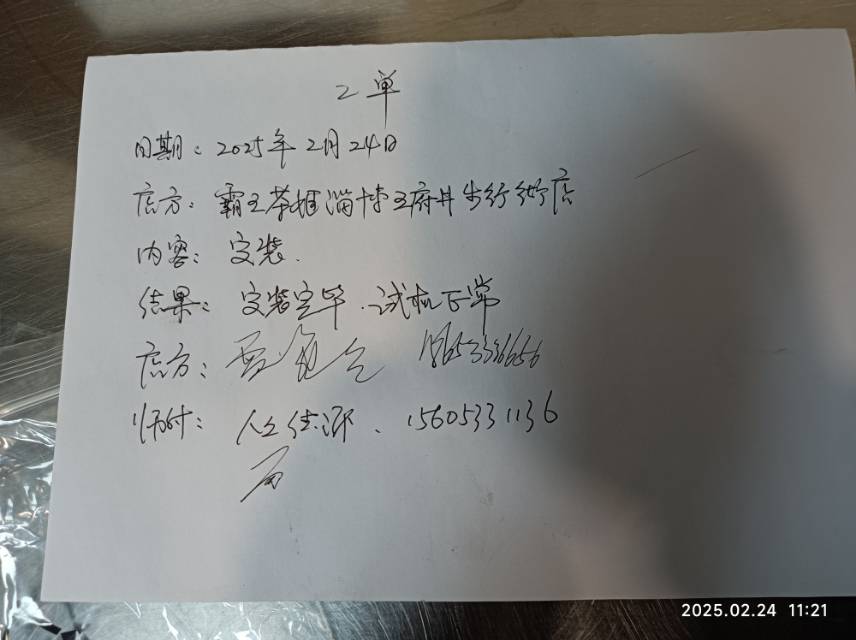 工单
日期：2025年2月24日
店方：霸王茶姬淄博王府井步行街店
内容：安装.
结果：安装完毕.试机正常
店方：
师付：、15605331136
2025.02.24 11:21